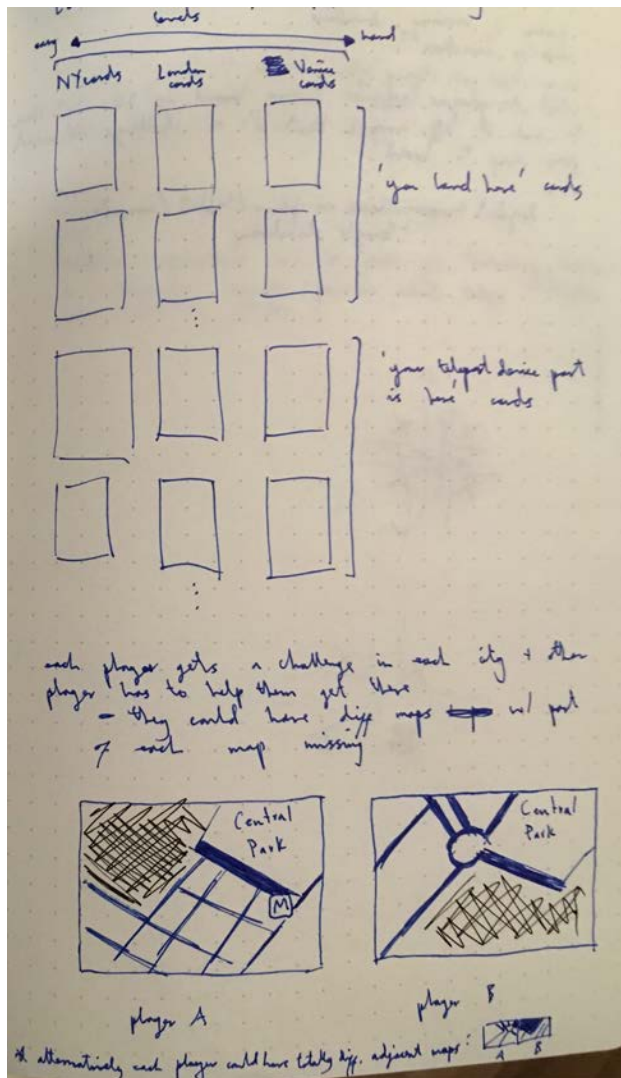 cards
easy hard
NY cards London cards Venice cards
'you land here' cards
'your teleport device part
is here' cards
each player gets a challenge in each city + other
player has to help them get there
- they could have diff maps w/ part
of each map missing
Central
Park
M
Central
Park
player A
player B
* alternatively each player could have totally diff. adjacent maps:
A B